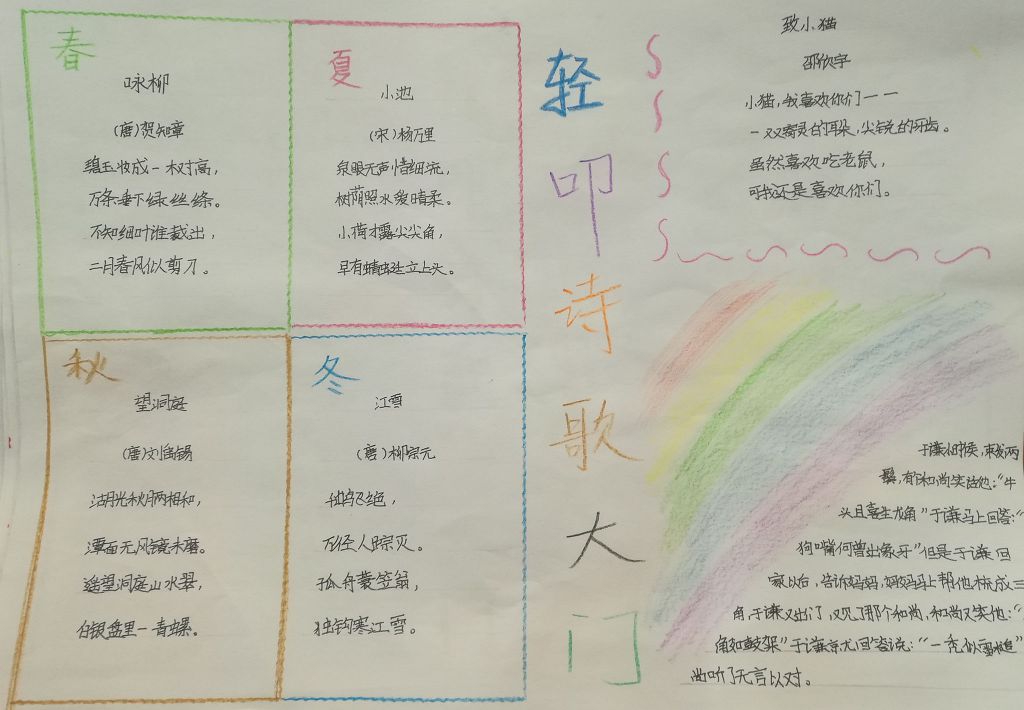 春
咏柳
(唐)贺知章
碧玉妆成一树高，
万条垂下绿丝绦。
不知细叶谁裁出，
二月春风似剪刀。
夏
小池
(宋)杨万里
泉眼无声惜细流，
树荫照水爱晴柔。
小荷才露尖尖角，
早有蜻蜓立上头。
秋
望洞庭
(唐)刘禹锡
湖光秋月两相和，
潭面无风镜未磨。
遥望洞庭山水翠，
白银盘里一青螺。
冬
江雪
(唐)柳宗元
千山鸟飞绝，
万径人踪灭。
孤舟蓑笠翁，
独钓寒江雪。
轻叩诗歌大门
致小猫
邵欣宇
小猫，我喜欢你们一一
一双双灵的耳朵，尖锐的牙齿。
虽然喜欢吃老鼠，
可我还是喜欢你们。
于谦小时候，梳两
鬓，有个和尚笑话他：“牛
头且喜生龙角”于谦马上回答：“
狗嘴何曾出象牙”但是于谦回
家以后，告诉妈妈，妈妈马上帮他梳成三
角，于谦又出门，又见了那个和尚，和尚又笑他：“
角如鼓架”于谦京尤回答说：“一秃似雷槌”
尚听了无言以对。